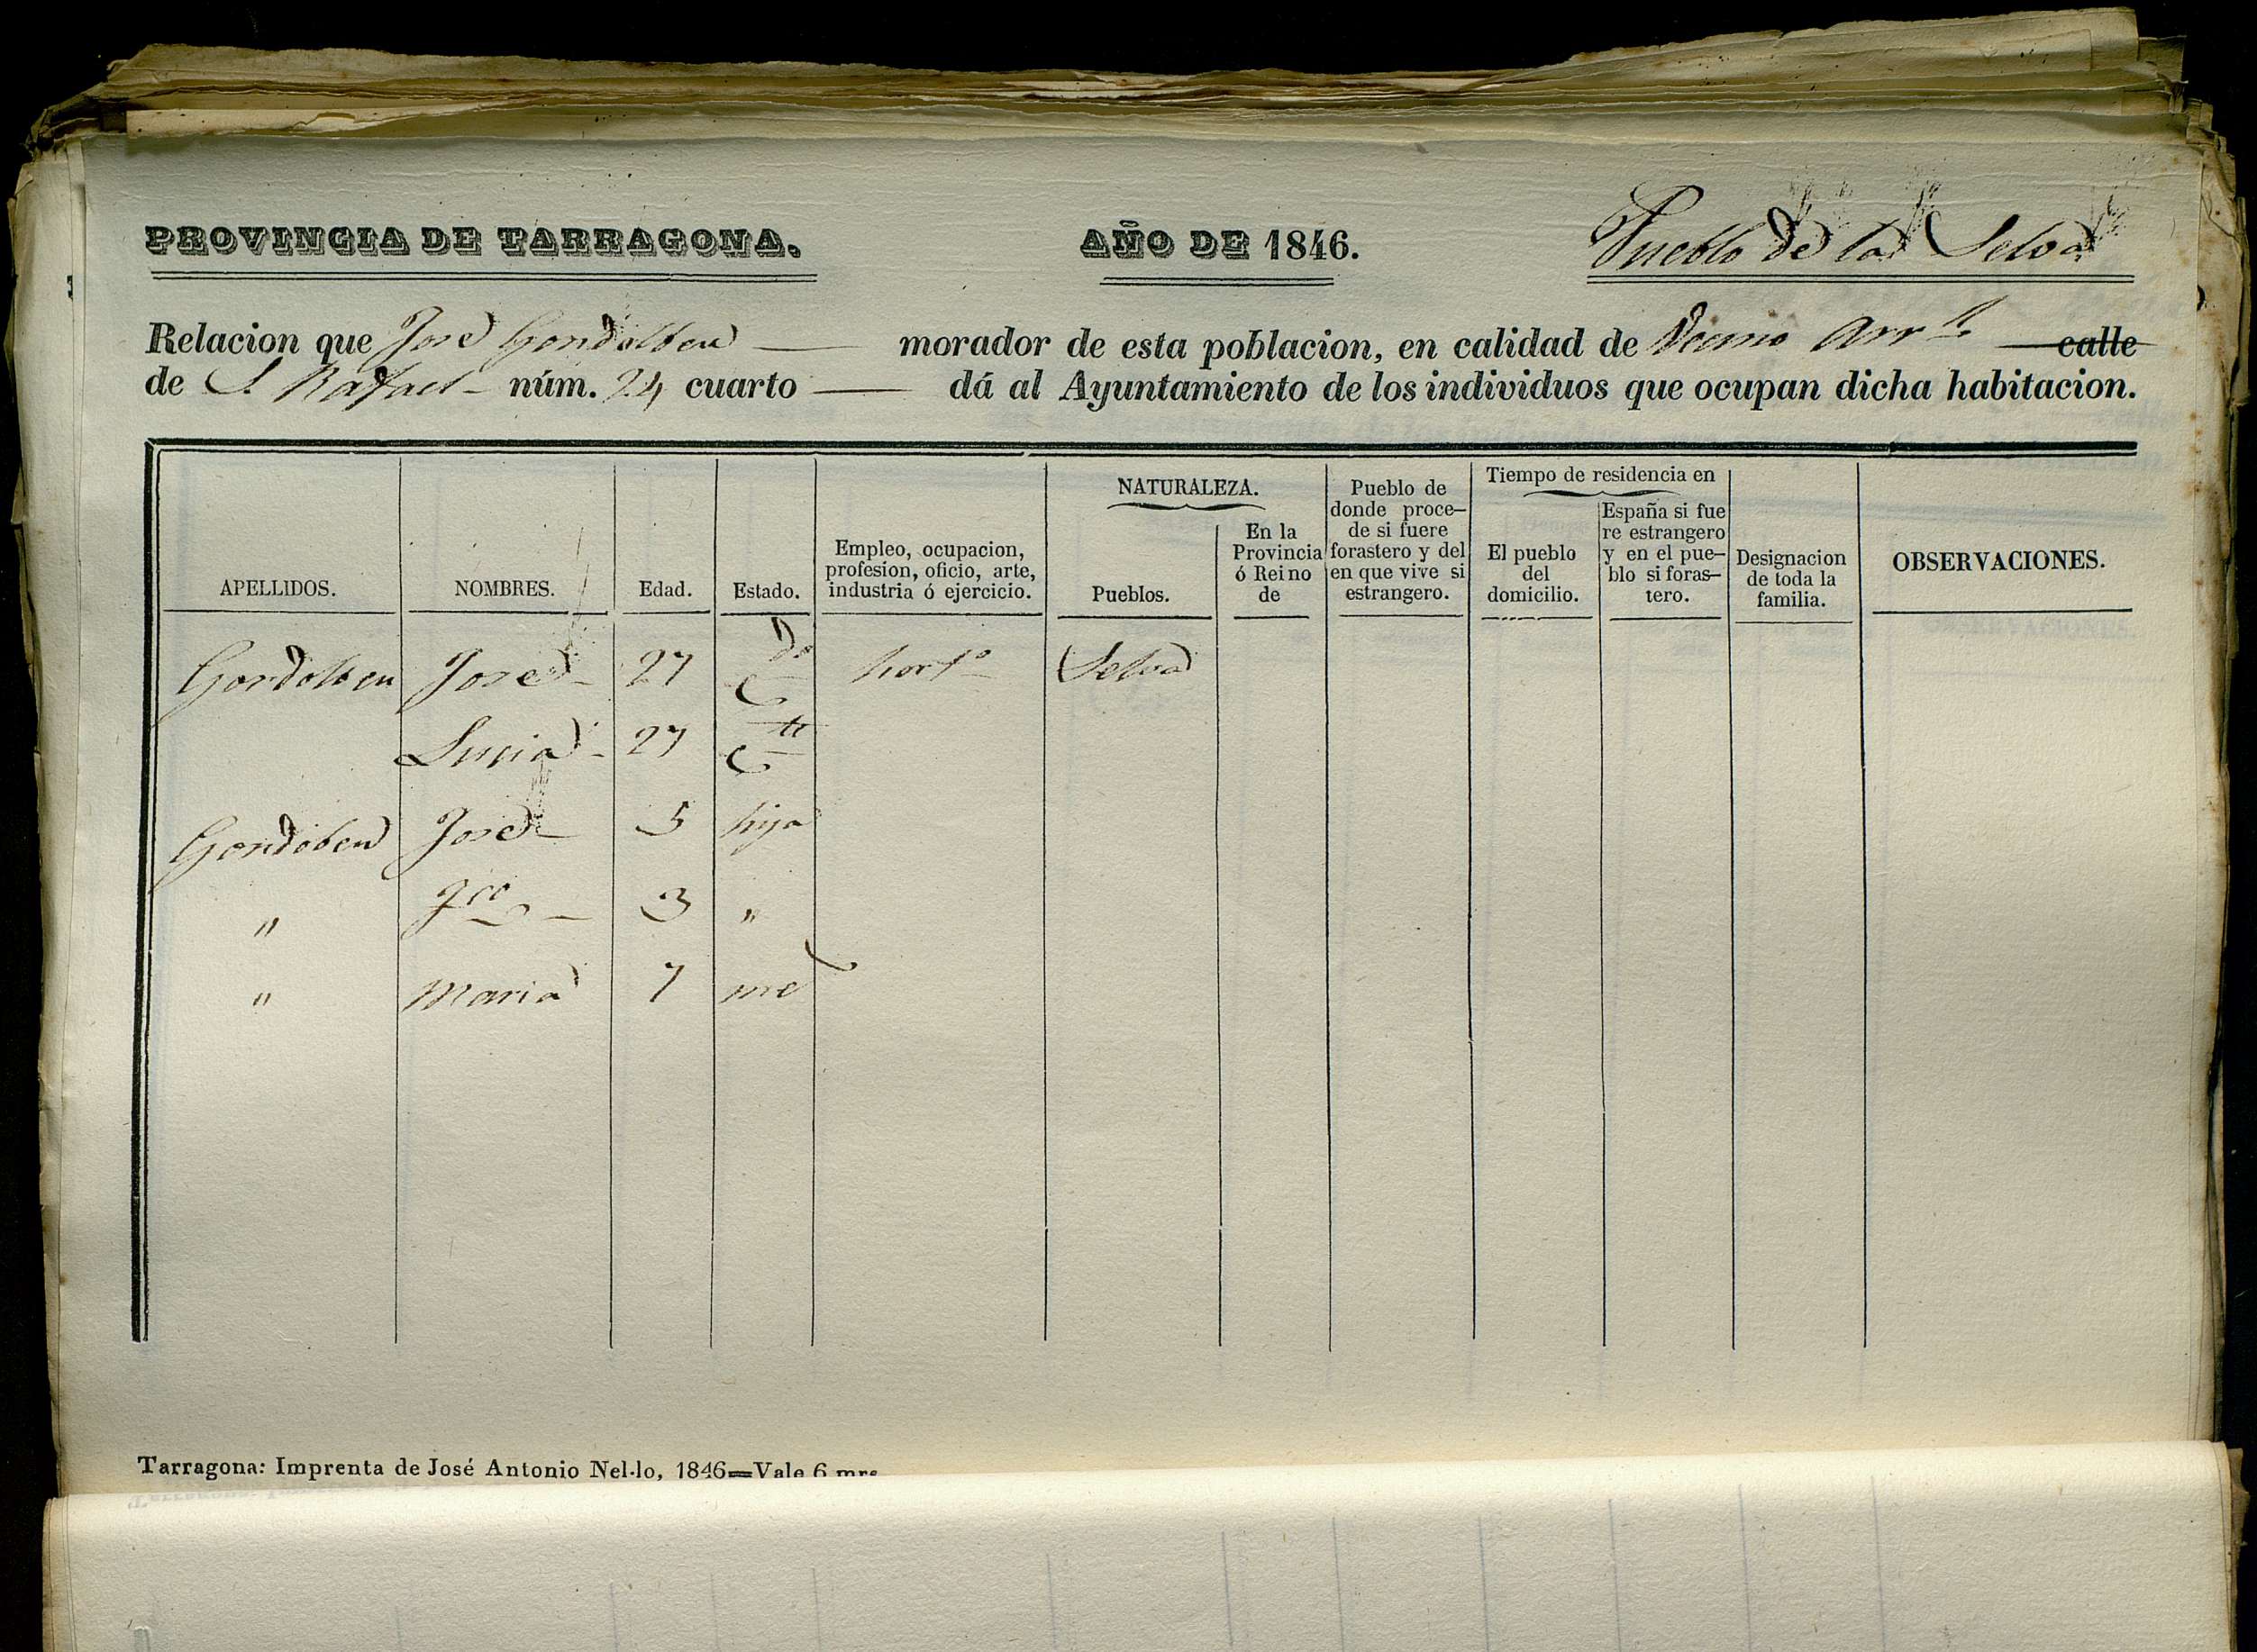 PROVINCIA DE TARRAGONA. AÑO DE 1846. Pueblo de la Selva
Relacion que José Gondolbeu morador de esta poblacion, en calidad de calle
de S. Rafael núm. 24 cuarto dá al Ayuntamiento de los individuos que ocupan dicha habitacion.
APELLIDOS.
NOMBRES.
Edad.
Estado.
Empleo, ocupacion,
profesion, oficio, arte,
industria ó ejercicio.
NATURALEZA.
Pueblos.
En la
Provincia
ó Reino
de
Pueblo de
donde proce-
de si fuere
forastero y del
en que vive si
estrangero.
Tiempo de residencia en
El pueblo
del
domicilio.
España si fue
re estrangero
y en el pue-
blo si foras-
tero.
Designacion
de toda la
familia.
OBSERVACIONES.
Gondolbeu José 27 C.do hort.o Selva
Lucia 27 C
Gondobeu José 5 hijo
" Fco 3 "
" Maria 7
Tarragona: Imprenta de José Antonio Nel·lo, 1846=Vale 6 mrs